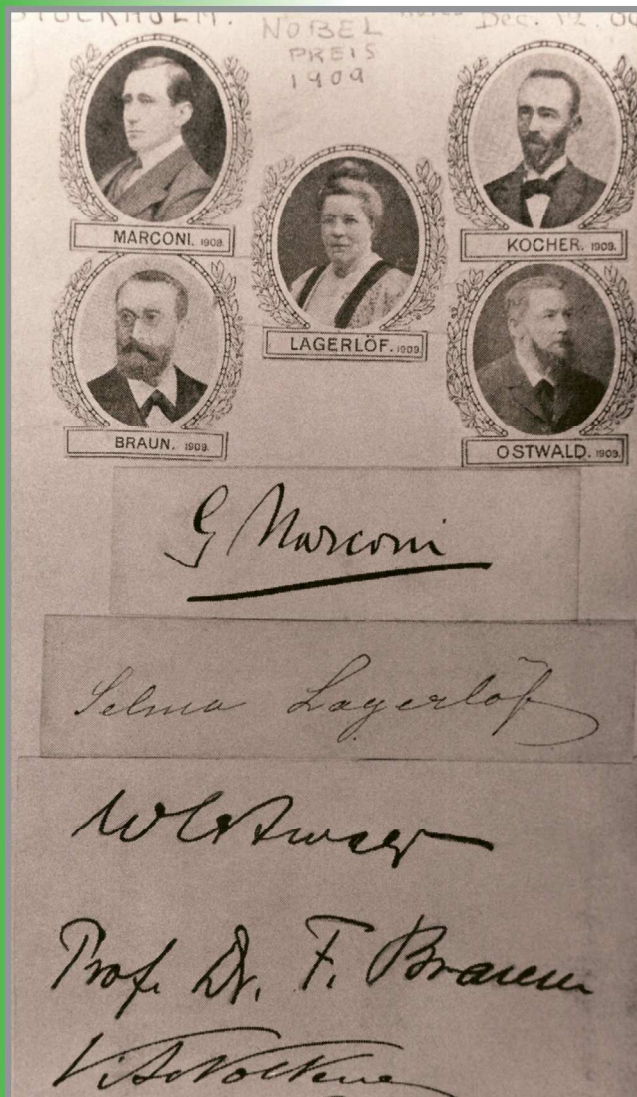 STOCKHOLM. Dec. 12.
NOBEL
PREIS
1909
MARCONI. 1909.
KOCHER. 1909.
LAGERLÖF. 1909.
BRAUN. 1909.
OSTWALD. 1909.
G Marconi
Selma Lagerlöf
W Ostwald
Prof. Dr. F. Braun